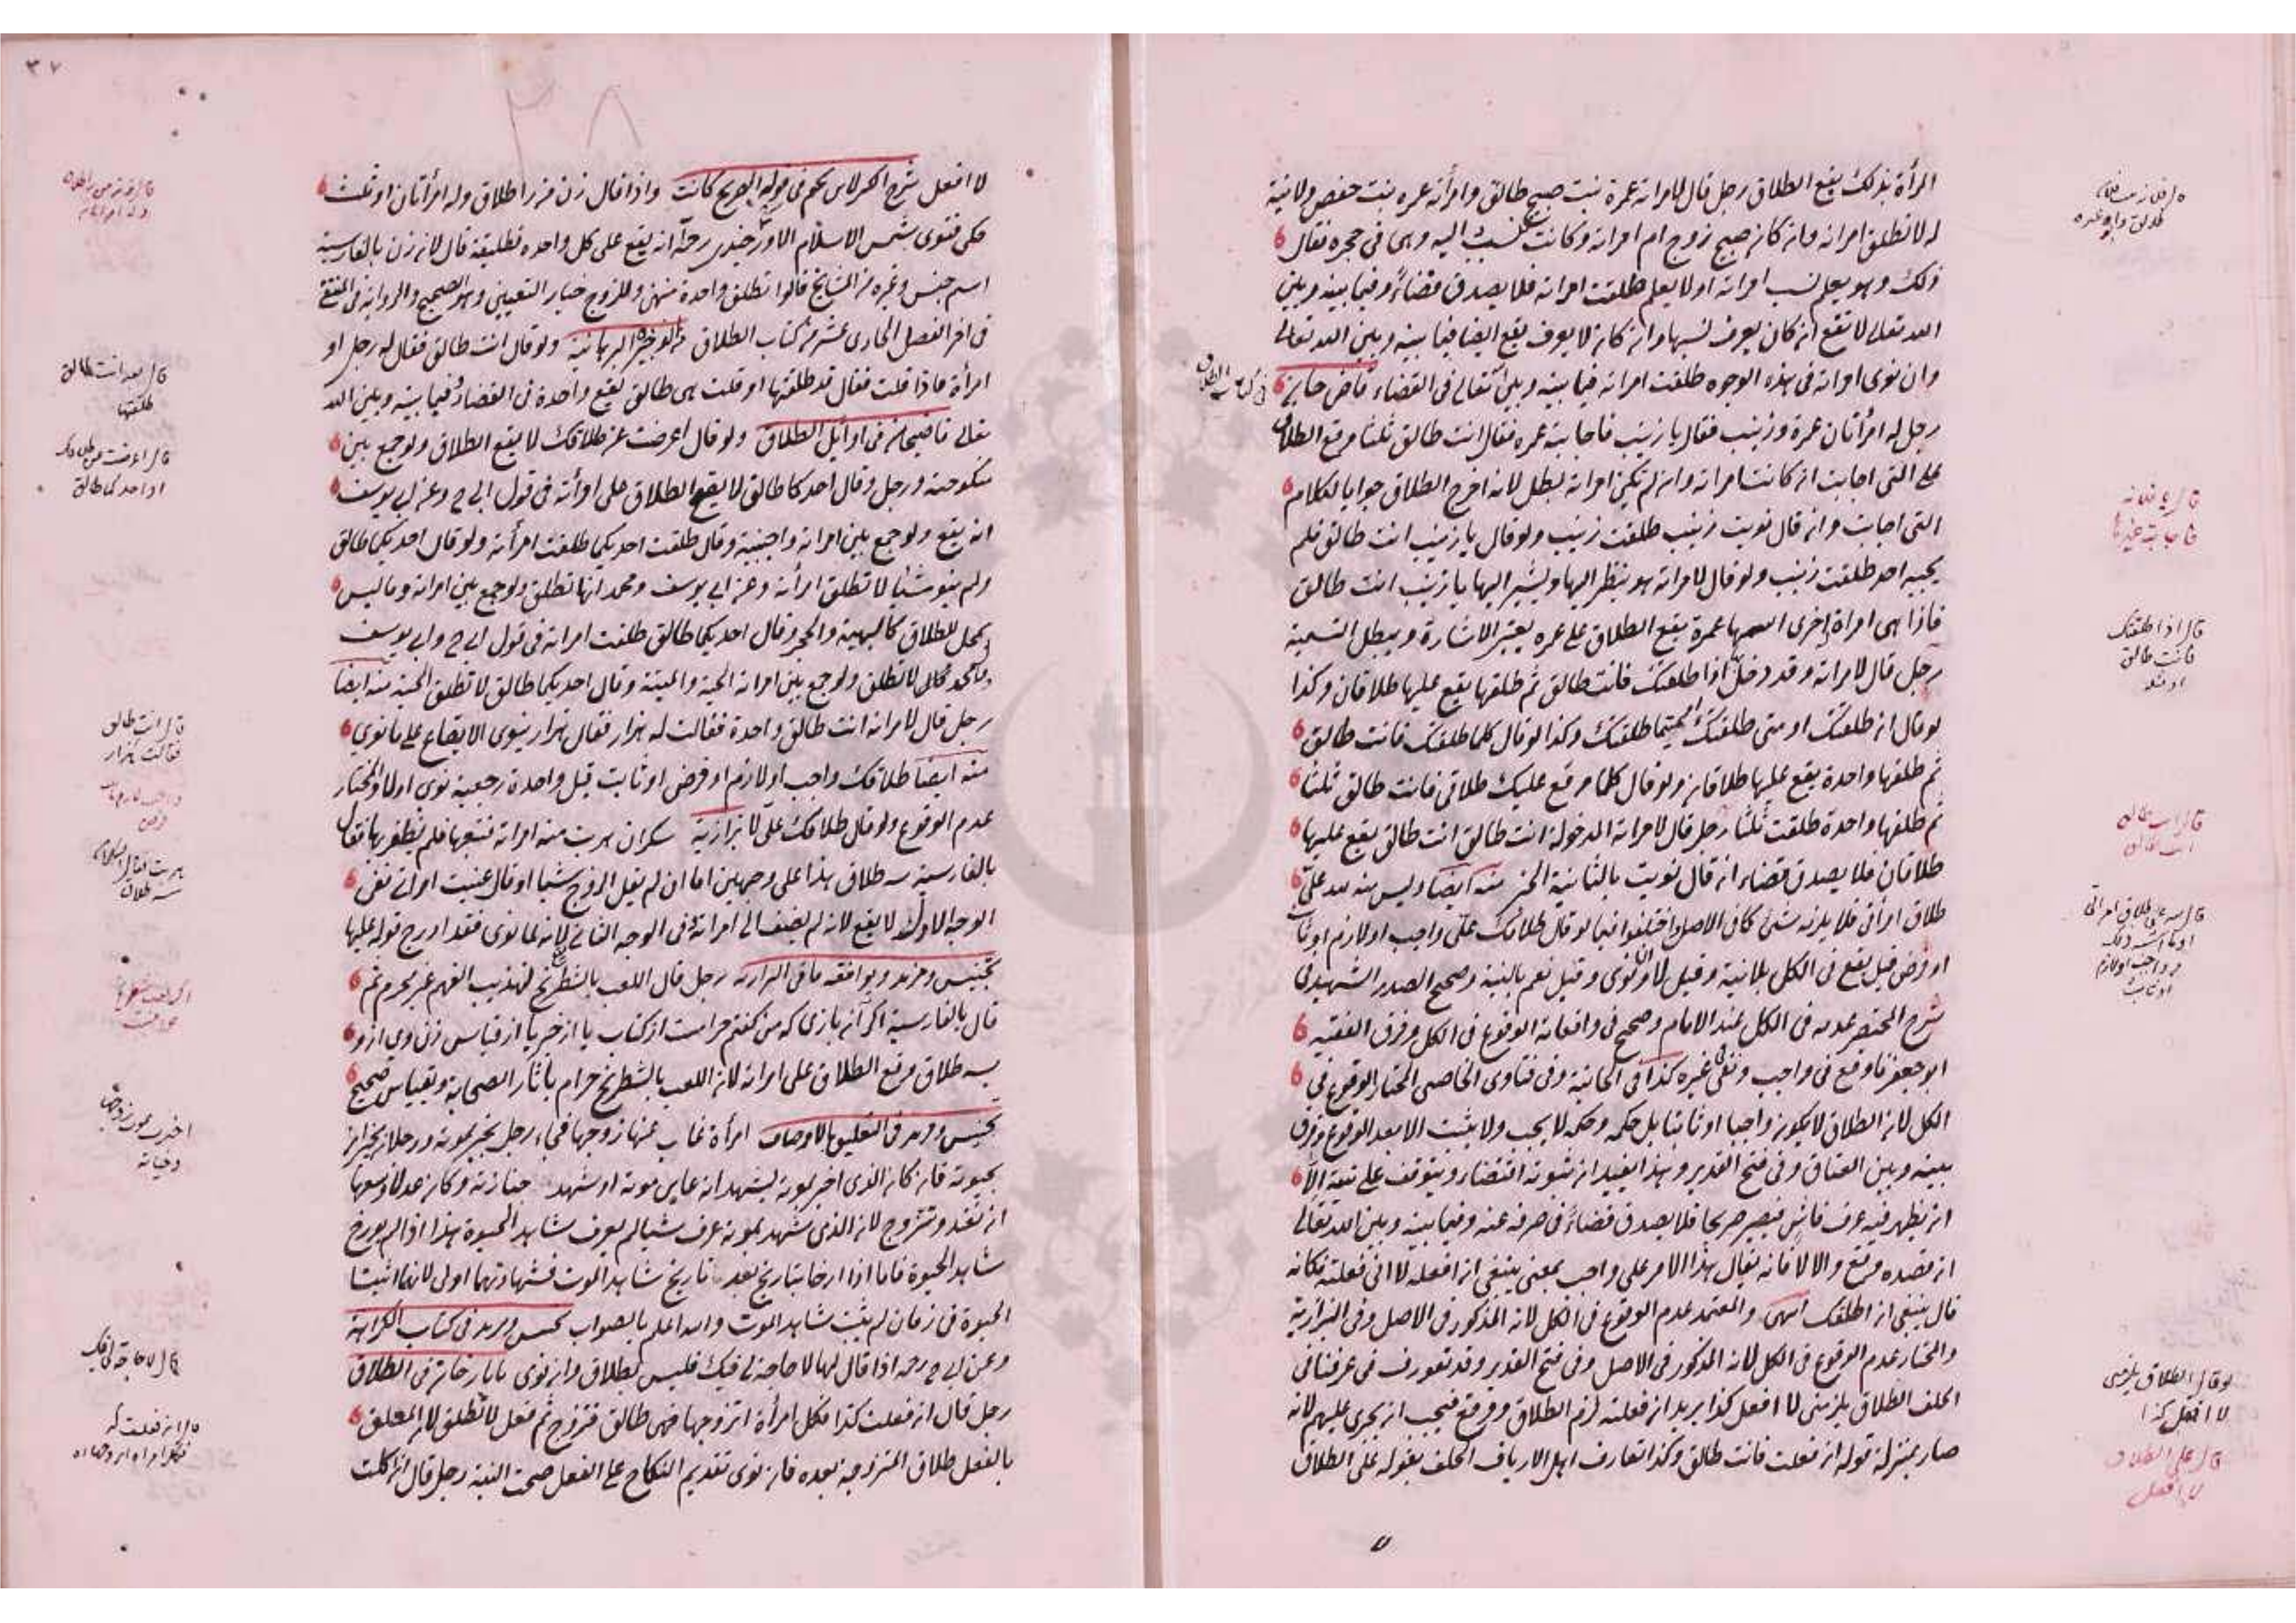 المرأة بذلك يقع الطلاق رجل قال لامراته عمرة بنت صبيح طالق وامرأته عمره بنت حفص ولا نية
له لا تطلق امراته وان كان صبيح زوج ام امراته وكانت تنسب اليه وهي في حجره فقال
ذلك وهو يعلم نسب امراته او لا يعلم طلقت امراته فلا يصدق قضاء وفيما بينه وبين
الله تعالى لا تقع ان كان يعرف نسبها وان كان لا يعرف يقع ايضا فيما بينه وبين الله تعالى
وان نوى امراته في هذه الوجوه طلقت امراته فيما بينه وبين الله تعالى في القضاء قاضى خان
رجل له امرأتان عمرة وزينب فقال يا زينب فاجابته عمره فقال انت طالق ثلثا وقع الطلاق
على التي اجابت ان كانت امراته وان لم تكن امراته بطل لانه اخرج الطلاق جوابا لكلام
التي اجابت وان قال نويت زينب طلقت زينب ولو قال يا زينب انت طالق فلم
يجيبه احد طلقت زينب ولو قال لامراته هو ينظر اليها ويشير اليها يا زينب انت طالق
فاذا هي امراة اخرى اسمها عمرة يقع الطلاق على عمره يعتبر الاشارة ويبطل التسمية
رجل قال لامراته وقد دخل اذا طلقتك فانت طالق ثم طلقها يقع عليها طلاقان وكذا
لو قال ان طلقتك او متى طلقتك متيما طلقتك وكذا لو قال كلما طلقتك فانت طالق
ثم طلقها واحدة يقع عليها طلاقان ولو قال كلما وقع عليك طلاقي فانت طالق ثلثا
ثم طلقها واحدة طلقت ثلثا رجل قال لامراته المدخولة انت طالق انت طالق يقع عليها
طلاقان فلا يصدق قضاء ان قال نويت بالثانية الخبر منه ايضا وليس منه لله علي
طلاق امرأتي فلا يلزمه شئ كما في الاصل واختلفوا فيما لو قال طلاقك علي واجب او لازم او ثابت
او فرض قيل يقع في الكل بلا نية وقيل لا وان نوى وقيل نعم بالنية وصحح الصدر الشهيد في
شرح المختصر عدمه في الكل عند الامام وصحح في واقعاته الوقوع في الكل وفرق الفقيه
ابو جعفر فاوقع في واجب ونفى في غيره كذا في الخانية وفي فتاوى الخاصي المختار الوقوع في
الكل لان الطلاق لا يكون واجبا او ثابتا بل حكمه وحكمه لا يجب ولا يثبت الا بعد الوقوع وفرق
بينه وبين العتاق وفي فتح القدير وهذا يفيد ان ثبوته اقتضاء ويتوقف على نيته الا
ان يظهر فيه عرف فاش فيصير صريحا فلا يصدق قضاء في صرفه عنه وفيما بينه وبين الله تعالى
ان قصده وقع والا لا فانه يقال هذا الامر علي واجب بمعنى ينبغي ان افعله لا اني فعلته فكانه
قال ينبغي ان اطلقك انتهى والمعتمد عدم الوقوع في الكل لانه المذكور في الاصل وفي البزازية
والمختار عدم الوقوع في الكل لانه المذكور في الاصل وفي فتح القدير وقد تعورف في عرفنا في
الحلف الطلاق يلزمني لا افعل كذا يريد ان فعلته لزم الطلاق ووقع فيجب ان يجري عليهم لانه
صار بمنزلة قوله ان فعلت فانت طالق وكذا تعارف اهل الارياف الحلف بقوله علي الطلاق
في كتاب الطلاق
قال يا فلانة
فاجابت غيرها
قال اذا طلقتك
فانت طالق
قال انت طالق
انت طالق
قال لله علي طلاق امراتي
لو قال الطلاق يلزمني
لا افعل كذا
قال علي الطلاق
لا افعل
٣٧
٣٨
لا افعل شرح الكنز لابن نجيم في قوله الصريح كانت واذا قال زن من را طلاق وله امرأتان او ثلث
حكى فتوى شمس الاسلام الاوزجندي رحمه الله انه يقع على كل واحده تطليقة قال لان زن بالفارسية
اسم جنس وغيره من المشايخ قالوا تطلق واحدة منهن وللزوج خيار التعيين وهو الصحيح والرواية في المنتقى
في اخر الفصل الحادي عشر من كتاب الطلاق من الذخيرة البرهانية ولو قال انت طالق فقال له رجل او
امرأة ماذا قلت فقال قد طلقتها او قلت هي طالق يقع واحدة في القضاء وفيما بينه وبين الله
تعالى قاضيخان في اوائل الطلاق ولو قال اعرضت عن طلاقك لا يقع الطلاق ولو جمع بين
منكوحته ورجل وقال احدكما طالق لا يقع الطلاق على امرأته في قول ابي ح وعن ابي يوسف
انه يقع ولو جمع بين امراته واجنبية وقال طلقت احديكما طلقت امرأته ولو قال احديكما طالق
ولم ينو شيئا لا تطلق امرأته وعن ابي يوسف ومحمد انها تطلق ولو جمع بين امراته وما ليس
بمحل للطلاق كالبهيمة والحجر وقال احديكما طالق طلقت امراته في قول ابي ح وابي يوسف
وقال محمد لا تطلق ولو جمع بين امراته الحية والميتة وقال احديكما طالق لا تطلق الحية منه ايضا
رجل قال لامراته انت طالق واحدة فقالت له هزار فقال هزار ينوى الايقاع على ما نوى
منه ايضا طلاقك واجب او لازم او فرض او ثابت قيل واحدة رجعية نوى اولا والمختار
عدم الوقوع ولو قال طلاقك علي لا بزازية سكران هربت منه امراته فتبعها فلم يظفر بها فقال
بالفارسية سه طلاق هذا على وجهين اما ان لم يقل الزوج شيئا او قال عنيت امراتي ففي
الوجه الاول لا يقع لانه لم يضف الى امراته في الوجه الثاني لانه لما نوى فقد ادرج قوله عليها
تجنيس ومزيد ويوافقه ما في البزازية رجل قال اللعب بالشطرنج لتهذيب الفهم غير محرم ثم
قال بالفارسية اكر آن بازى كه من كفتم حرامست از كتاب يا از خبر يا از قياس زن وى از و
سه طلاق وقع الطلاق على امراته لان اللعب بالشطرنج حرام بآثار الصحابة وبقياس صحيح
تجنيس ومزيد في التعليق بالاوصاف امرأة غاب عنها زوجها فجاء رجل يخبر بموته ورجلان يخبران
بحيوته فان كان الذي اخبر بموته يشهد انه عاين موته او شهد جنازته وكان عدلا وسعها
ان تعتد وتتزوج لان الذي شهد بموته عرف شيئا لم يعرف شاهد الحيوة هذا اذا لم يورخ
شاهد الحيوة فاما اذا ارخا بتاريخ بعد تاريخ شاهد الموت فشهادتهما اولى لانهما اثبتا
الحيوة في زمان لم يثبت شاهد الموت والله اعلم بالصواب تجنيس ومزيد في كتاب الكراهية
وعن ابي ح رحمه اذا قال لها لا حاجة لي فيك فليس بطلاق وان نوى تاتارخانية في الطلاق
رجل قال ان فعلت كذا فكل امرأة اتزوجها فهي طالق فتزوج ثم فعل لا تطلق لان المعلق
بالفعل طلاق المتزوجة بعده فان نوى تقديم النكاح على الفعل صحت النية رجل قال ان اكلت
قال بعد انت طالق
طلقتها
او احدكما طالق
قال انت طالق
فقالت هزار
سه طلاق
قال لا حاجة لي فيك